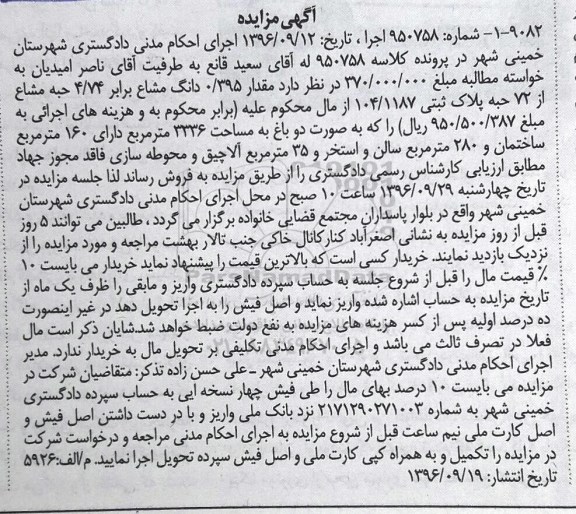 آگهی مزایده
۹۰۸۲-۱- شماره: ۹۵۰۷۵۸ اجرا ، تاریخ: ۱۳۹۶/۰۹/۱۲ اجرای احکام مدنی دادگستری شهرستان
خمینی شهر در پرونده کلاسه ۹۵۰۷۵۸ له آقای سعید قانع به طرفیت آقای ناصر امیدیان به
خواسته مطالبه مبلغ ۳۷۰/۰۰۰/۰۰۰ در نظر دارد مقدار ۰/۳۹۵ دانگ مشاع برابر ۴/۷۴ حبه مشاع
از ۷۲ حبه پلاک ثبتی ۱۰۴/۱۱۸۷ از مال محکوم علیه (برابر محکوم به و هزینه های اجرائی به
مبلغ ۹۵۰/۵۰۰/۳۸۷ ریال) را که به صورت دو باغ به مساحت ۳۳۳۶ مترمربع دارای ۱۶۰ مترمربع
ساختمان و ۲۸۰ مترمربع سالن و استخر و ۳۵ مترمربع آلاچیق و محوطه سازی فاقد مجوز جهاد
مطابق ارزیابی کارشناس رسمی دادگستری را از طریق مزایده به فروش رساند لذا جلسه مزایده در
تاریخ چهارشنبه ۱۳۹۶/۰۹/۲۹ ساعت ۱۰ صبح در محل اجرای احکام مدنی دادگستری شهرستان
خمینی شهر واقع در بلوار پاسداران مجتمع قضایی خانواده برگزار می گردد ، طالبین می توانند ۵ روز
قبل از روز مزایده به نشانی اصغرآباد کنارکانال خاکی جنب تالار بهشت مراجعه و مورد مزایده را از
نزدیک بازدید نمایند. خریدار کسی است که بالاترین قیمت را پیشنهاد نماید خریدار می بایست ۱۰
٪ قیمت مال را قبل از شروع جلسه به حساب سپرده دادگستری واریز و مابقی را ظرف یک ماه از
تاریخ مزایده به حساب اشاره شده واریز نماید و اصل فیش را به اجرا تحویل دهد در غیر اینصورت
ده درصد اولیه پس از کسر هزینه های مزایده به نفع دولت ضبط خواهد شد.شایان ذکر است مال
فعلا در تصرف ثالث می باشد و اجرای احکام مدنی تکلیفی بر تحویل مال به خریدار ندارد. مدیر
اجرای احکام مدنی دادگستری شهرستان خمینی شهر -علی حسن زاده تذکر: متقاضیان شرکت در
مزایده می بایست ۱۰ درصد بهای مال را طی فیش چهار نسخه ایی به حساب سپرده دادگستری
خمینی شهر به شماره ۲۱۷۱۲۹۰۲۷۱۰۰۳ نزد بانک ملی واریز و با در دست داشتن اصل فیش و
اصل کارت ملی نیم ساعت قبل از شروع مزایده به اجرای احکام مدنی مراجعه و درخواست شرکت
در مزایده را تکمیل و به همراه کپی کارت ملی و اصل فیش سپرده تحویل اجرا نمایید. م/الف:۵۹۲۶
تاریخ انتشار: ۱۳۹۶/۰۹/۱۹